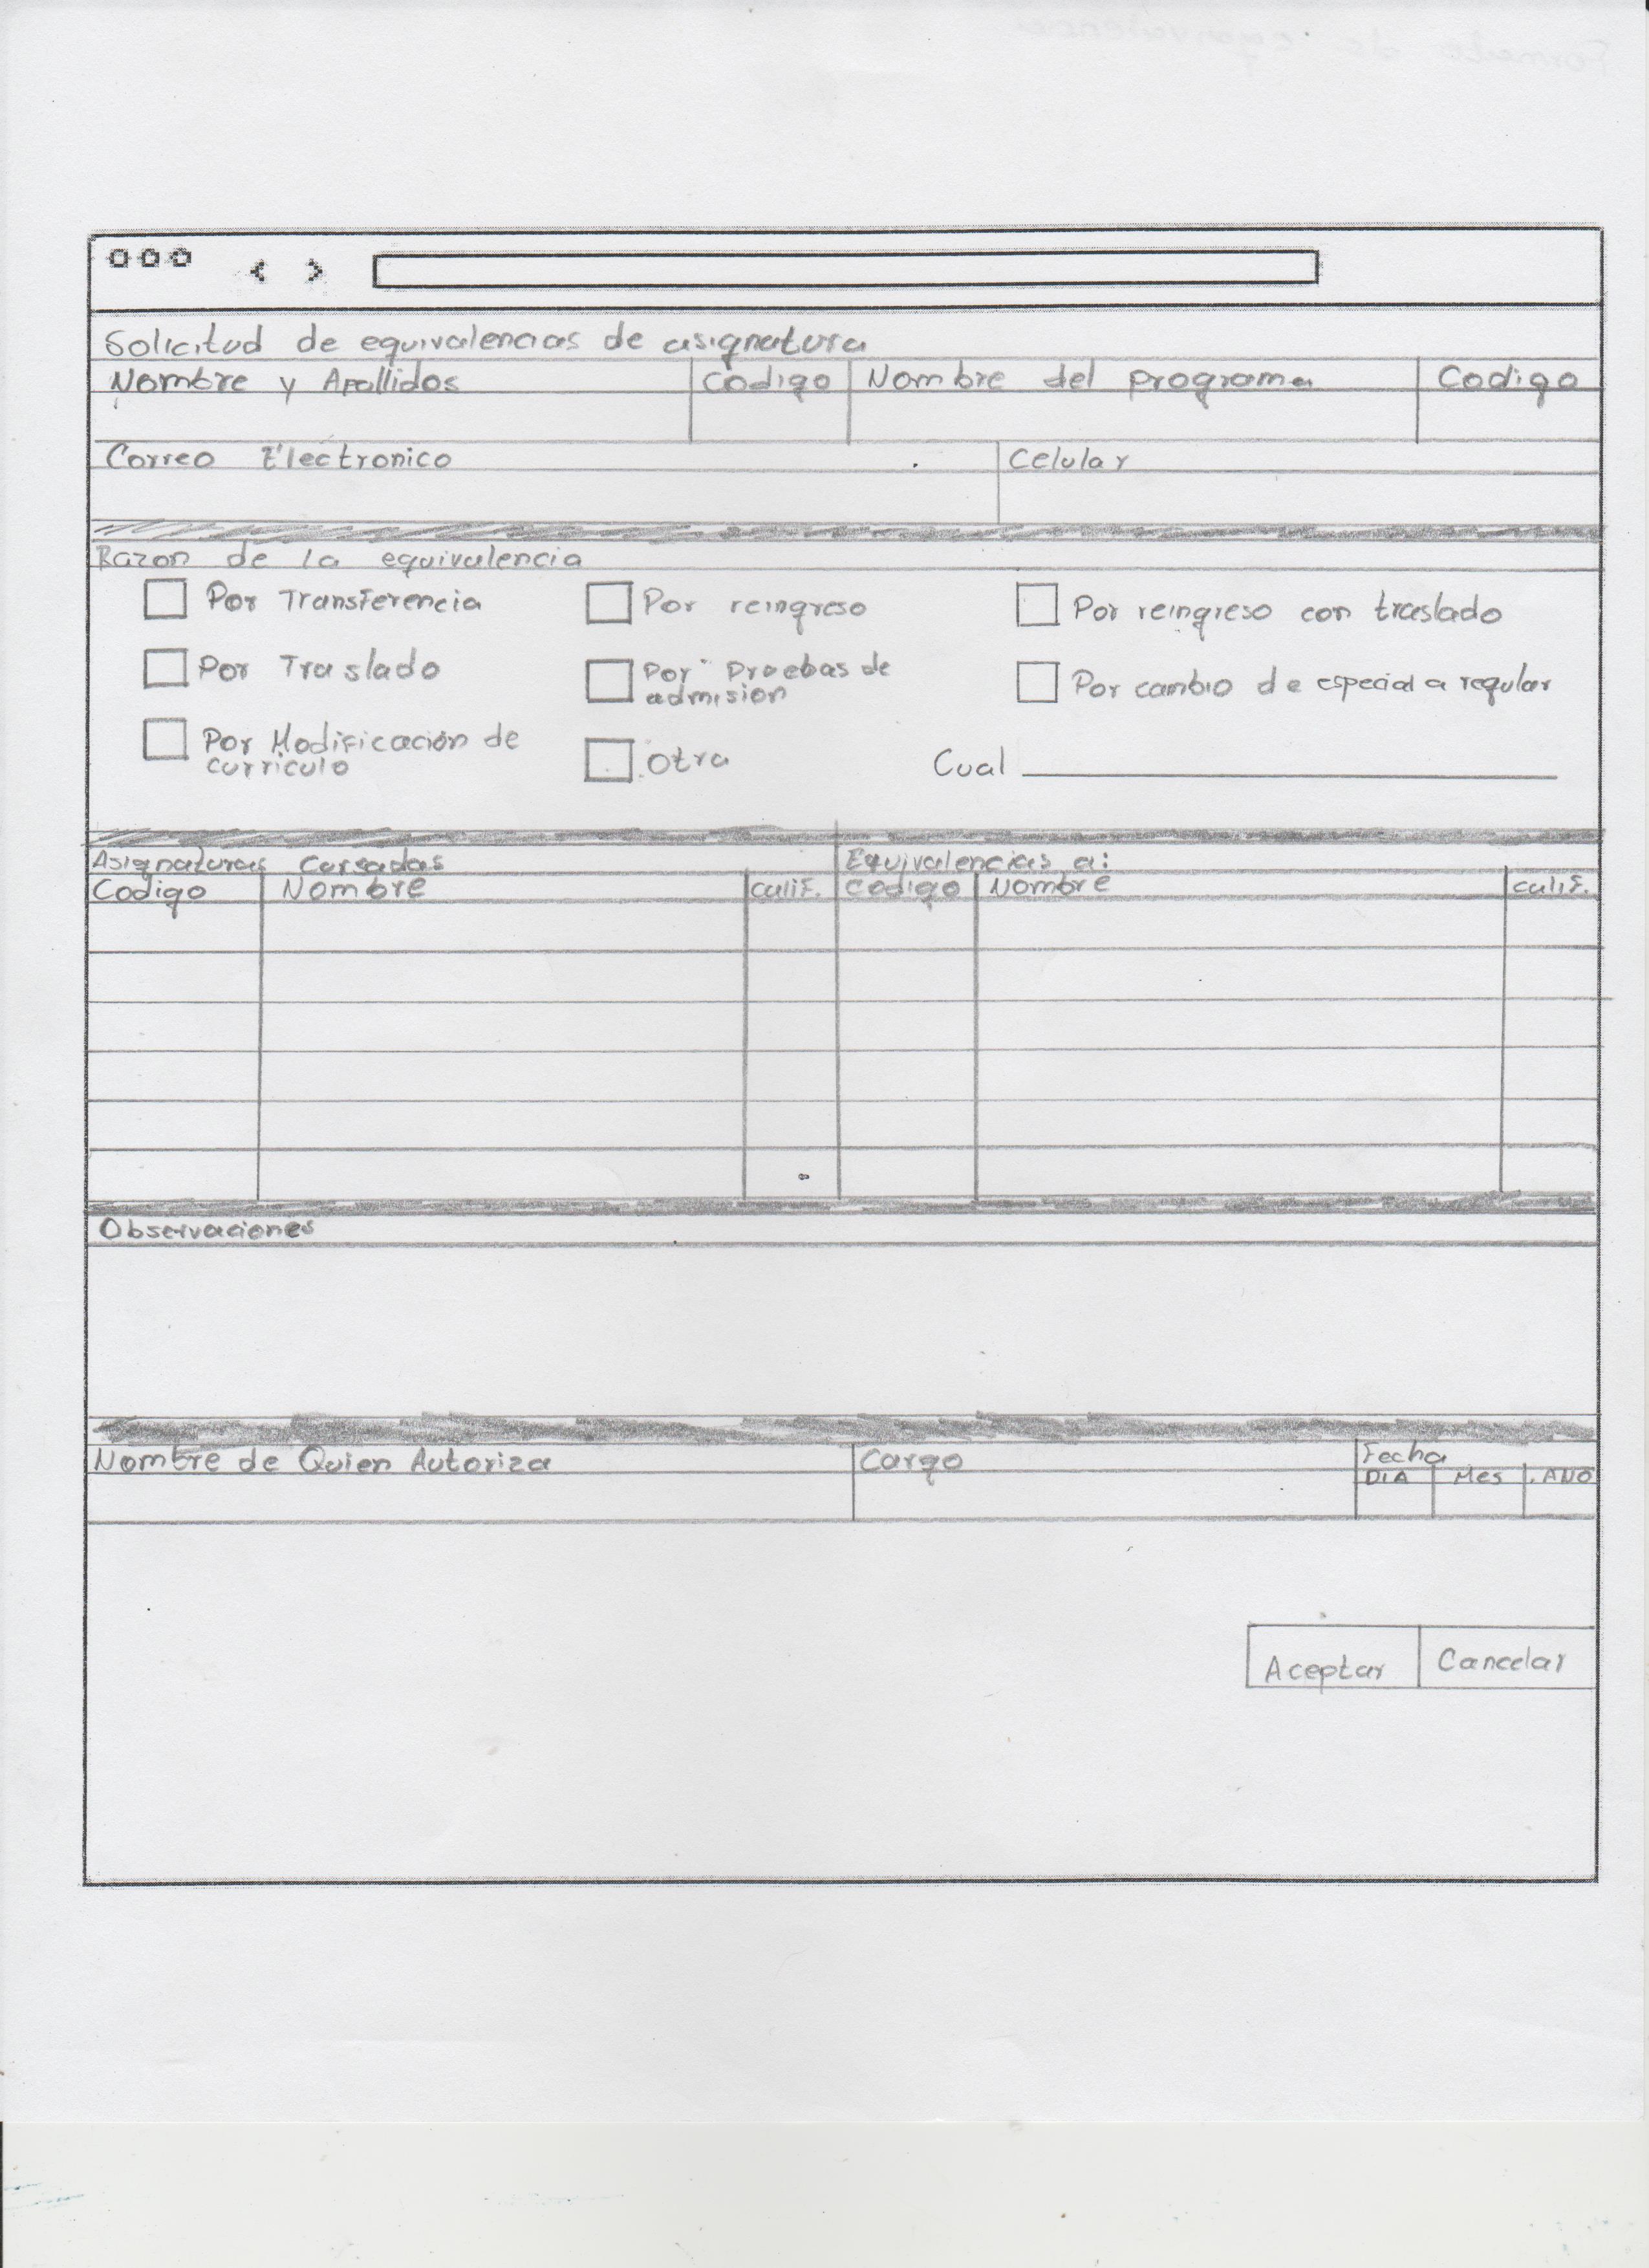 Solicitud de equivalencias de asignatura
Nombre y Apallidos Codigo Nombre del programa Codigo
Correo Electronico Celular
Razon de la equivalencia
Por Transferencia Por reingreso Por reingreso con traslado
Por Traslado Por Pruebas de Por cambio de especial a regular
admision
Por Modificación de
curriculo Otra Cual
Asignaturas Cursadas Equivalencias a:
Codigo Nombre calif. Codigo Nombre calif.
Observaciones
Nombre de Quien Autoriza Cargo Fecha
DIA Mes AÑO
Aceptar Cancelar